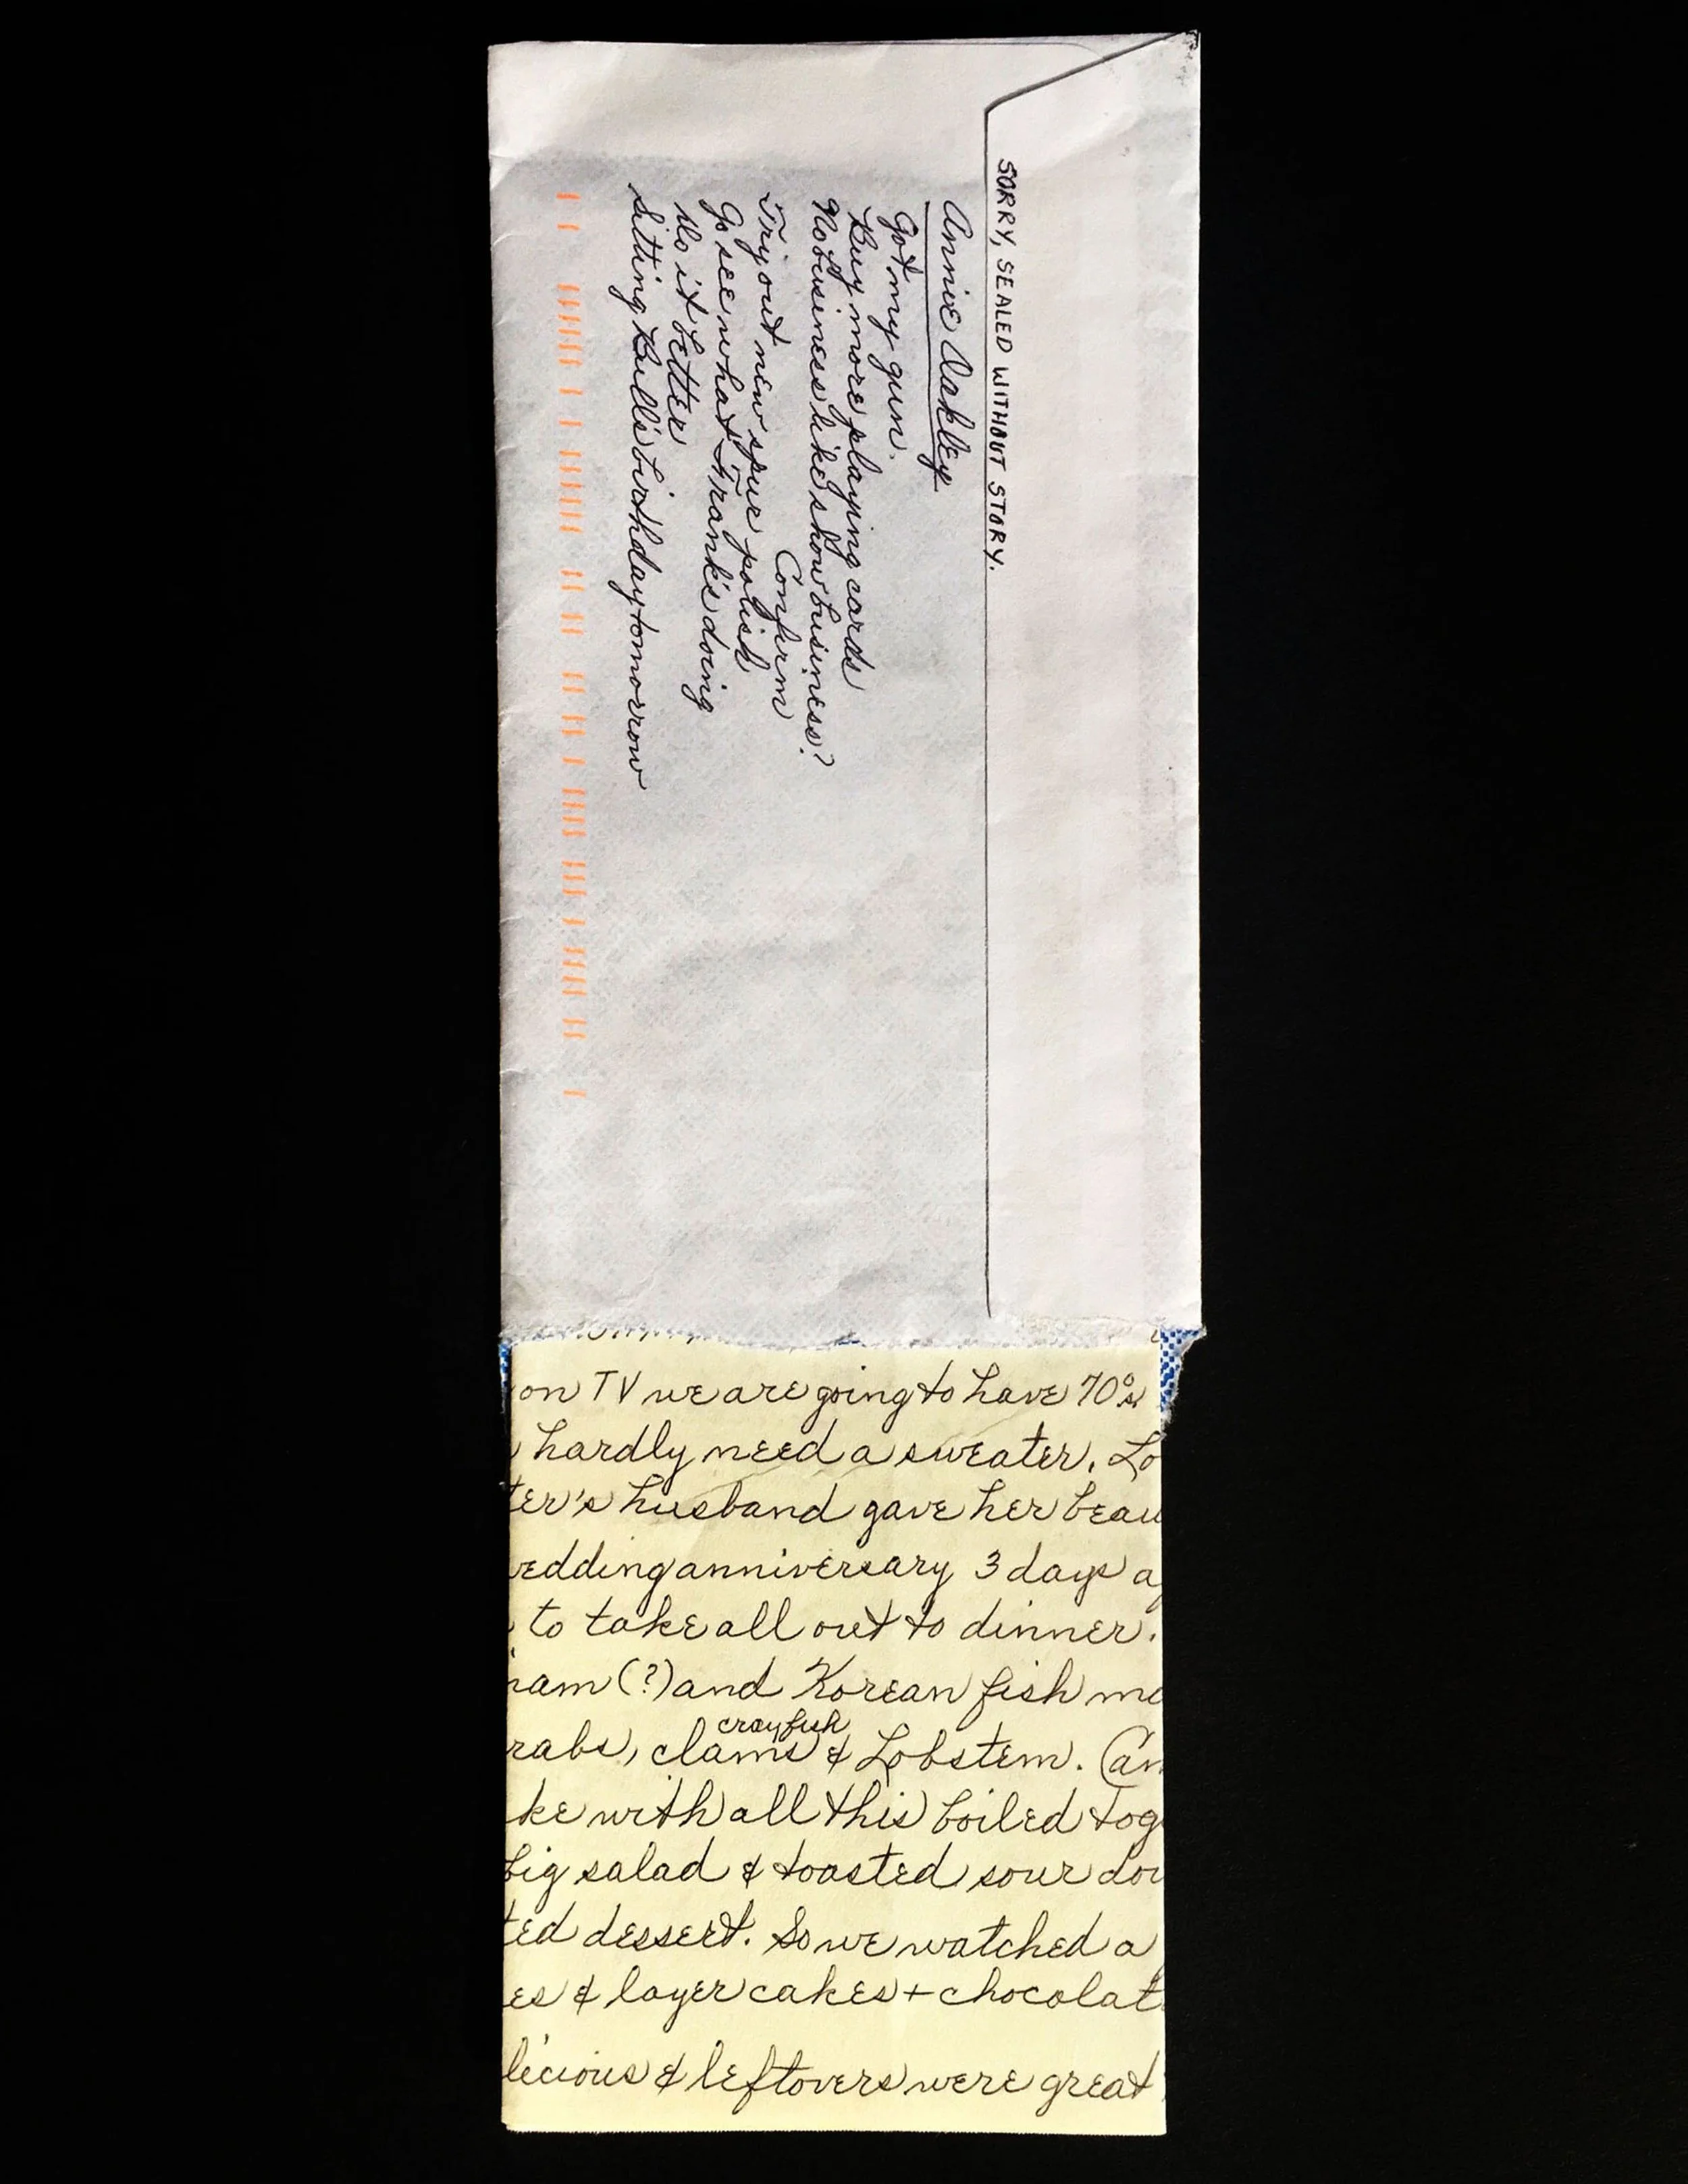 SORRY, SEALED WITHOUT STORY.
Annie Oakley
Got my gun.
Buy more playing cards
No business like show business?
Confirm
Try out new spur polish
Go see what Frank's doing
Do it better
Sitting Bull's birthday tomorrow
on TV we are going to have 70°s
hardly need a sweater. Lo
ter's husband gave her beau
edding anniversary 3 days a
to take all out to dinner.
am (?) and Korean fish m
crayfish
rabs, clams & Lobstem. Can
ke with all this boiled tog
big salad & toasted sour dou
ted dessert. So we watched a
es & layer cakes + chocolat
licious & leftovers were great